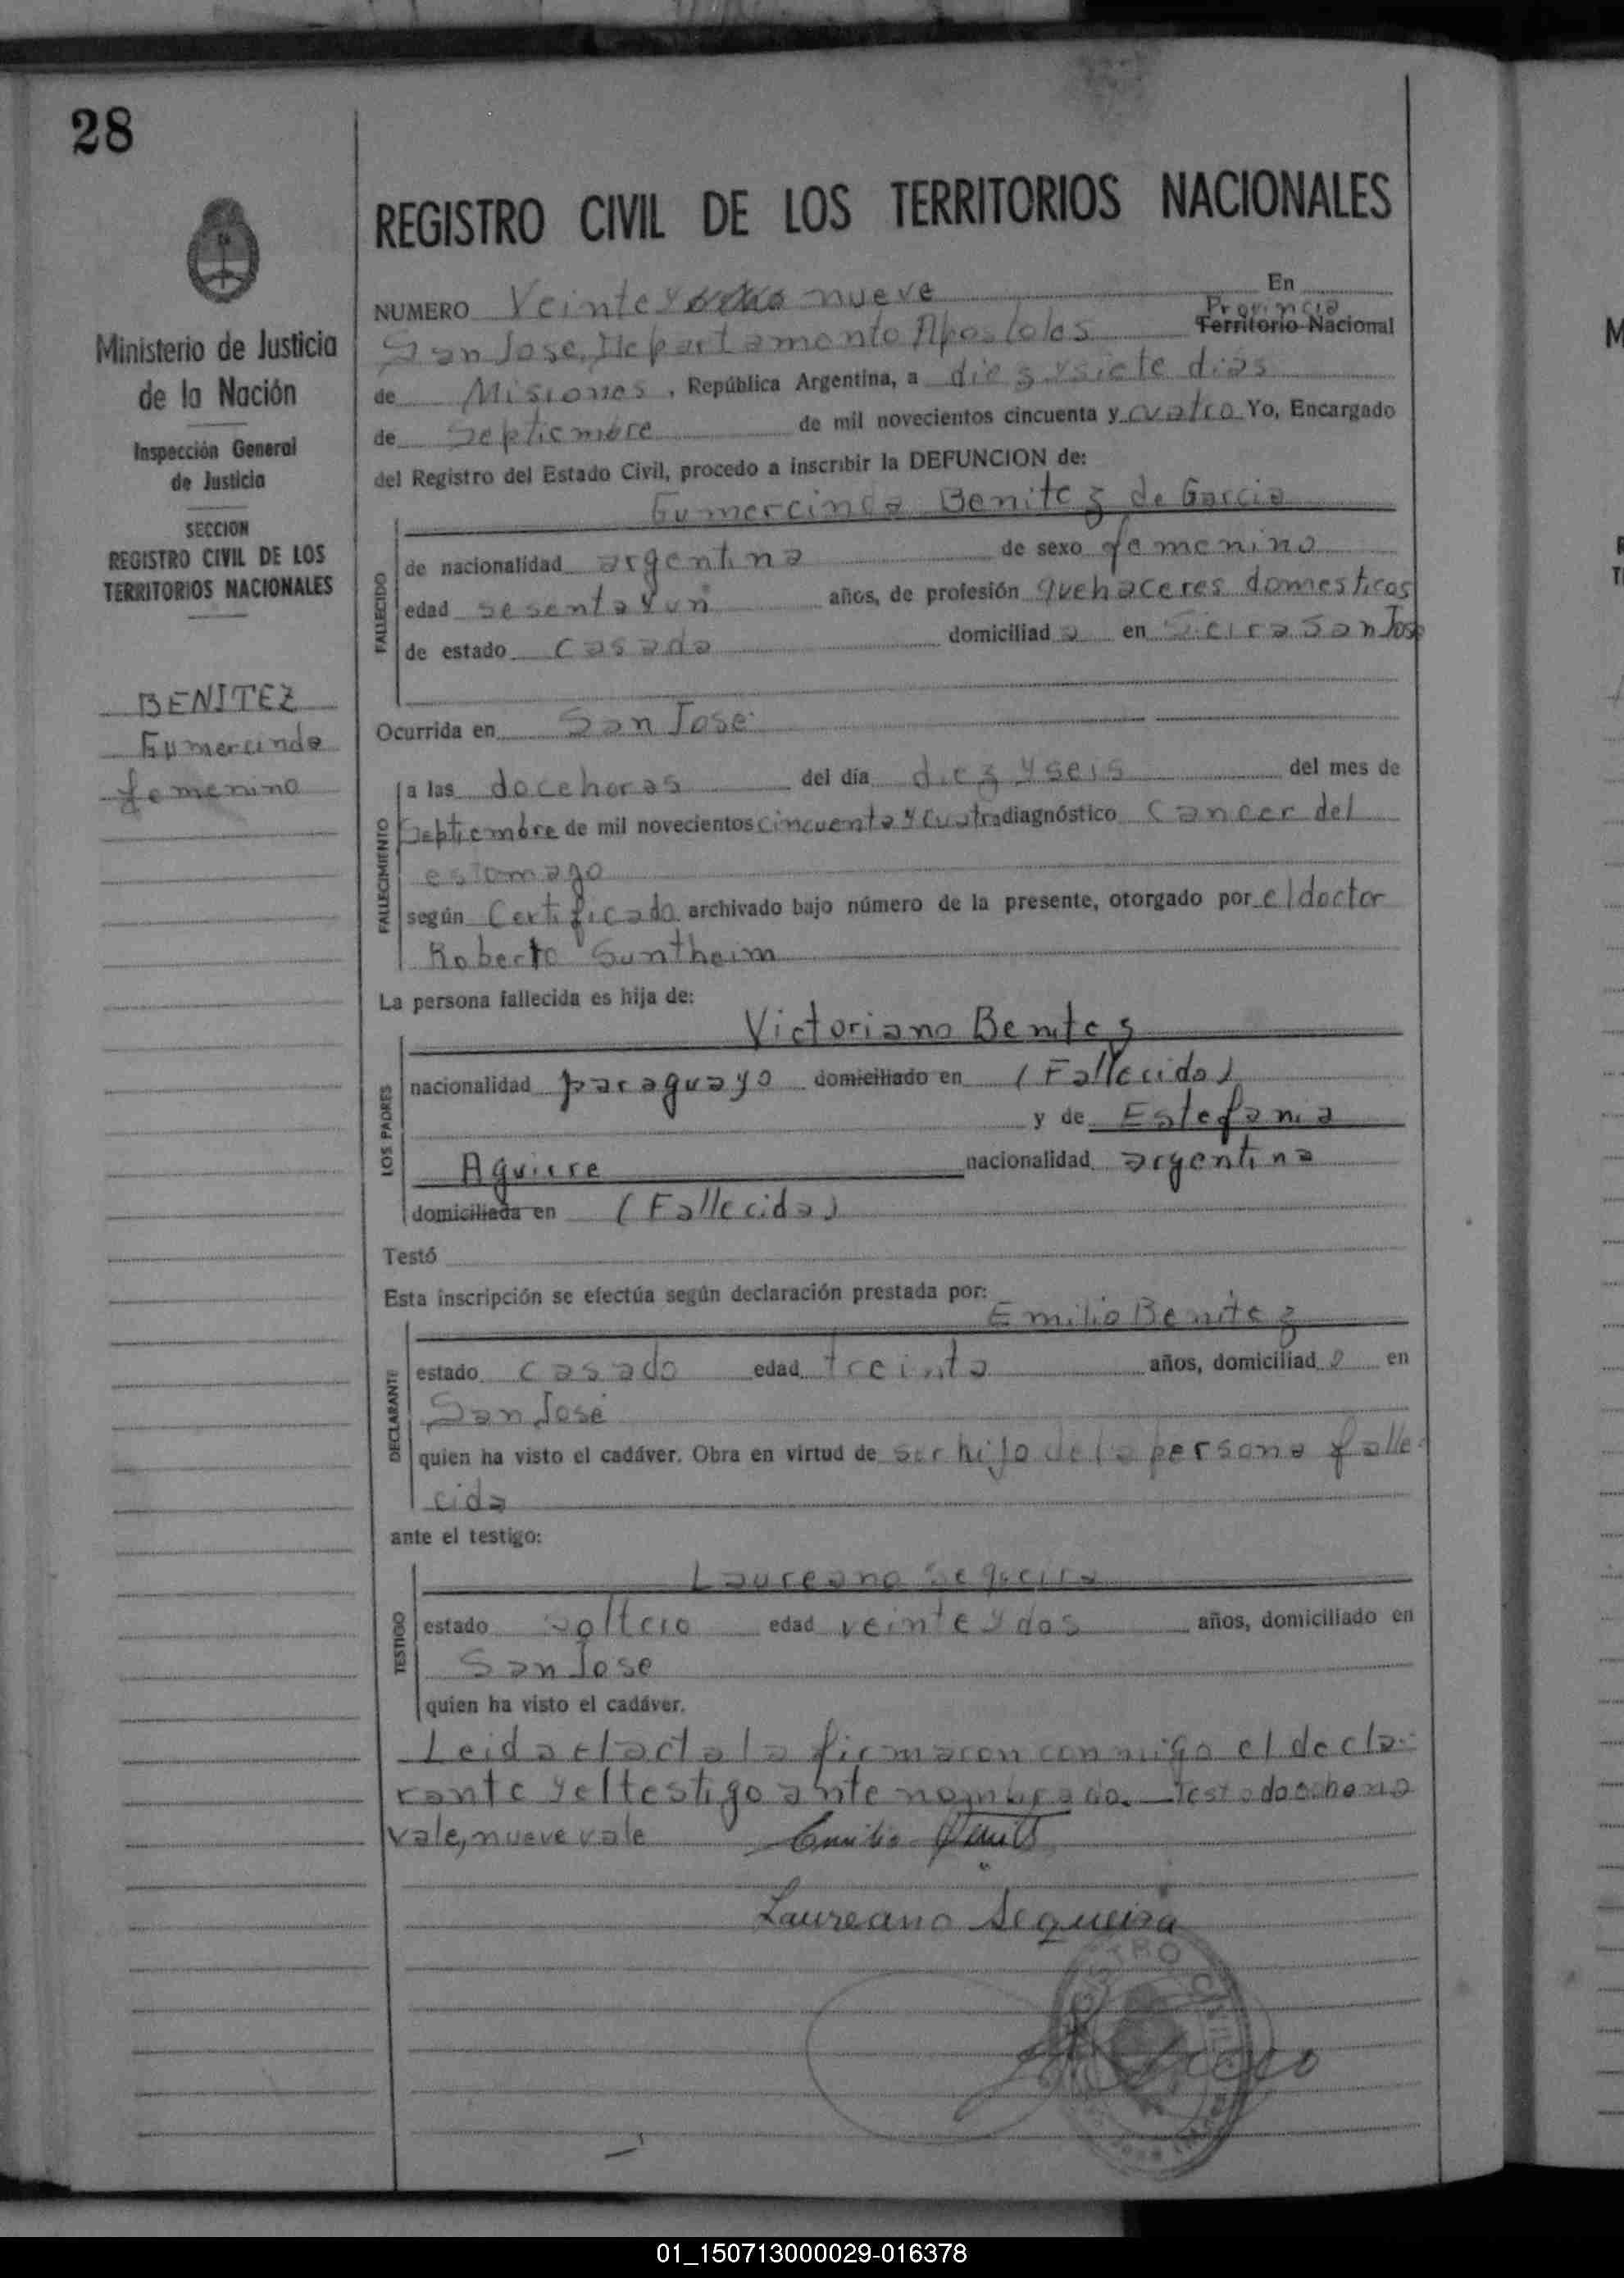 28
REGISTRO CIVIL DE LOS TERRITORIOS NACIONALES
Ministerio de Justicia
de la Nación
Inspección General
de Justicia
SECCION
REGISTRO CIVIL DE LOS
TERRITORIOS NACIONALES
BENITEZ
Gumercinda
femenino
NUMERO Veinte y ocho nueve En
San Jose, Departamento Apostoles Provincia Territorio Nacional
de Misiones, República Argentina, a diez y siete dias
de Septiembre de mil novecientos cincuenta y cuatro Yo, Encargado
del Registro del Estado Civil, procedo a inscribir la DEFUNCION de:
Gumercinda Benitez de Garcia
FALLECIDO
de nacionalidad argentina de sexo femenino
edad sesenta y un años, de profesión quehaceres domesticos
de estado casada domiciliad a en Sierra San Jose
Ocurrida en San Jose
FALLECIMIENTO
a las doce horas del día diez y seis del mes de
Septiembre de mil novecientos cincuenta y cuatro diagnóstico Cancer del
estomago
según Certificado archivado bajo número de la presente, otorgado por el doctor
Roberto Suntheim
La persona fallecida es hija de:
Victoriano Benitez
LOS PADRES
nacionalidad paraguayo domiciliado en (Fallecido)
y de Estefania
Aguirre nacionalidad argentina
domiciliada en (Fallecida)
Testó
Esta inscripción se efectúa según declaración prestada por:
Emilio Benitez
DECLARANTE
estado casado edad treinta años, domiciliad o en
San Jose
quien ha visto el cadáver. Obra en virtud de ser hijo de la persona falle-
cida
ante el testigo:
Laureano Sequeira
TESTIGO
estado soltero edad veinte y dos años, domiciliado en
San Jose
quien ha visto el cadáver.
Leida el acta la firmaron conmigo el decla-
rante y el testigo ante nombrado. Testado ocho no
vale, nueve vale Emilio Benitez
Laureano Sequeira
REGISTRO CIVIL
01_150713000029-016378